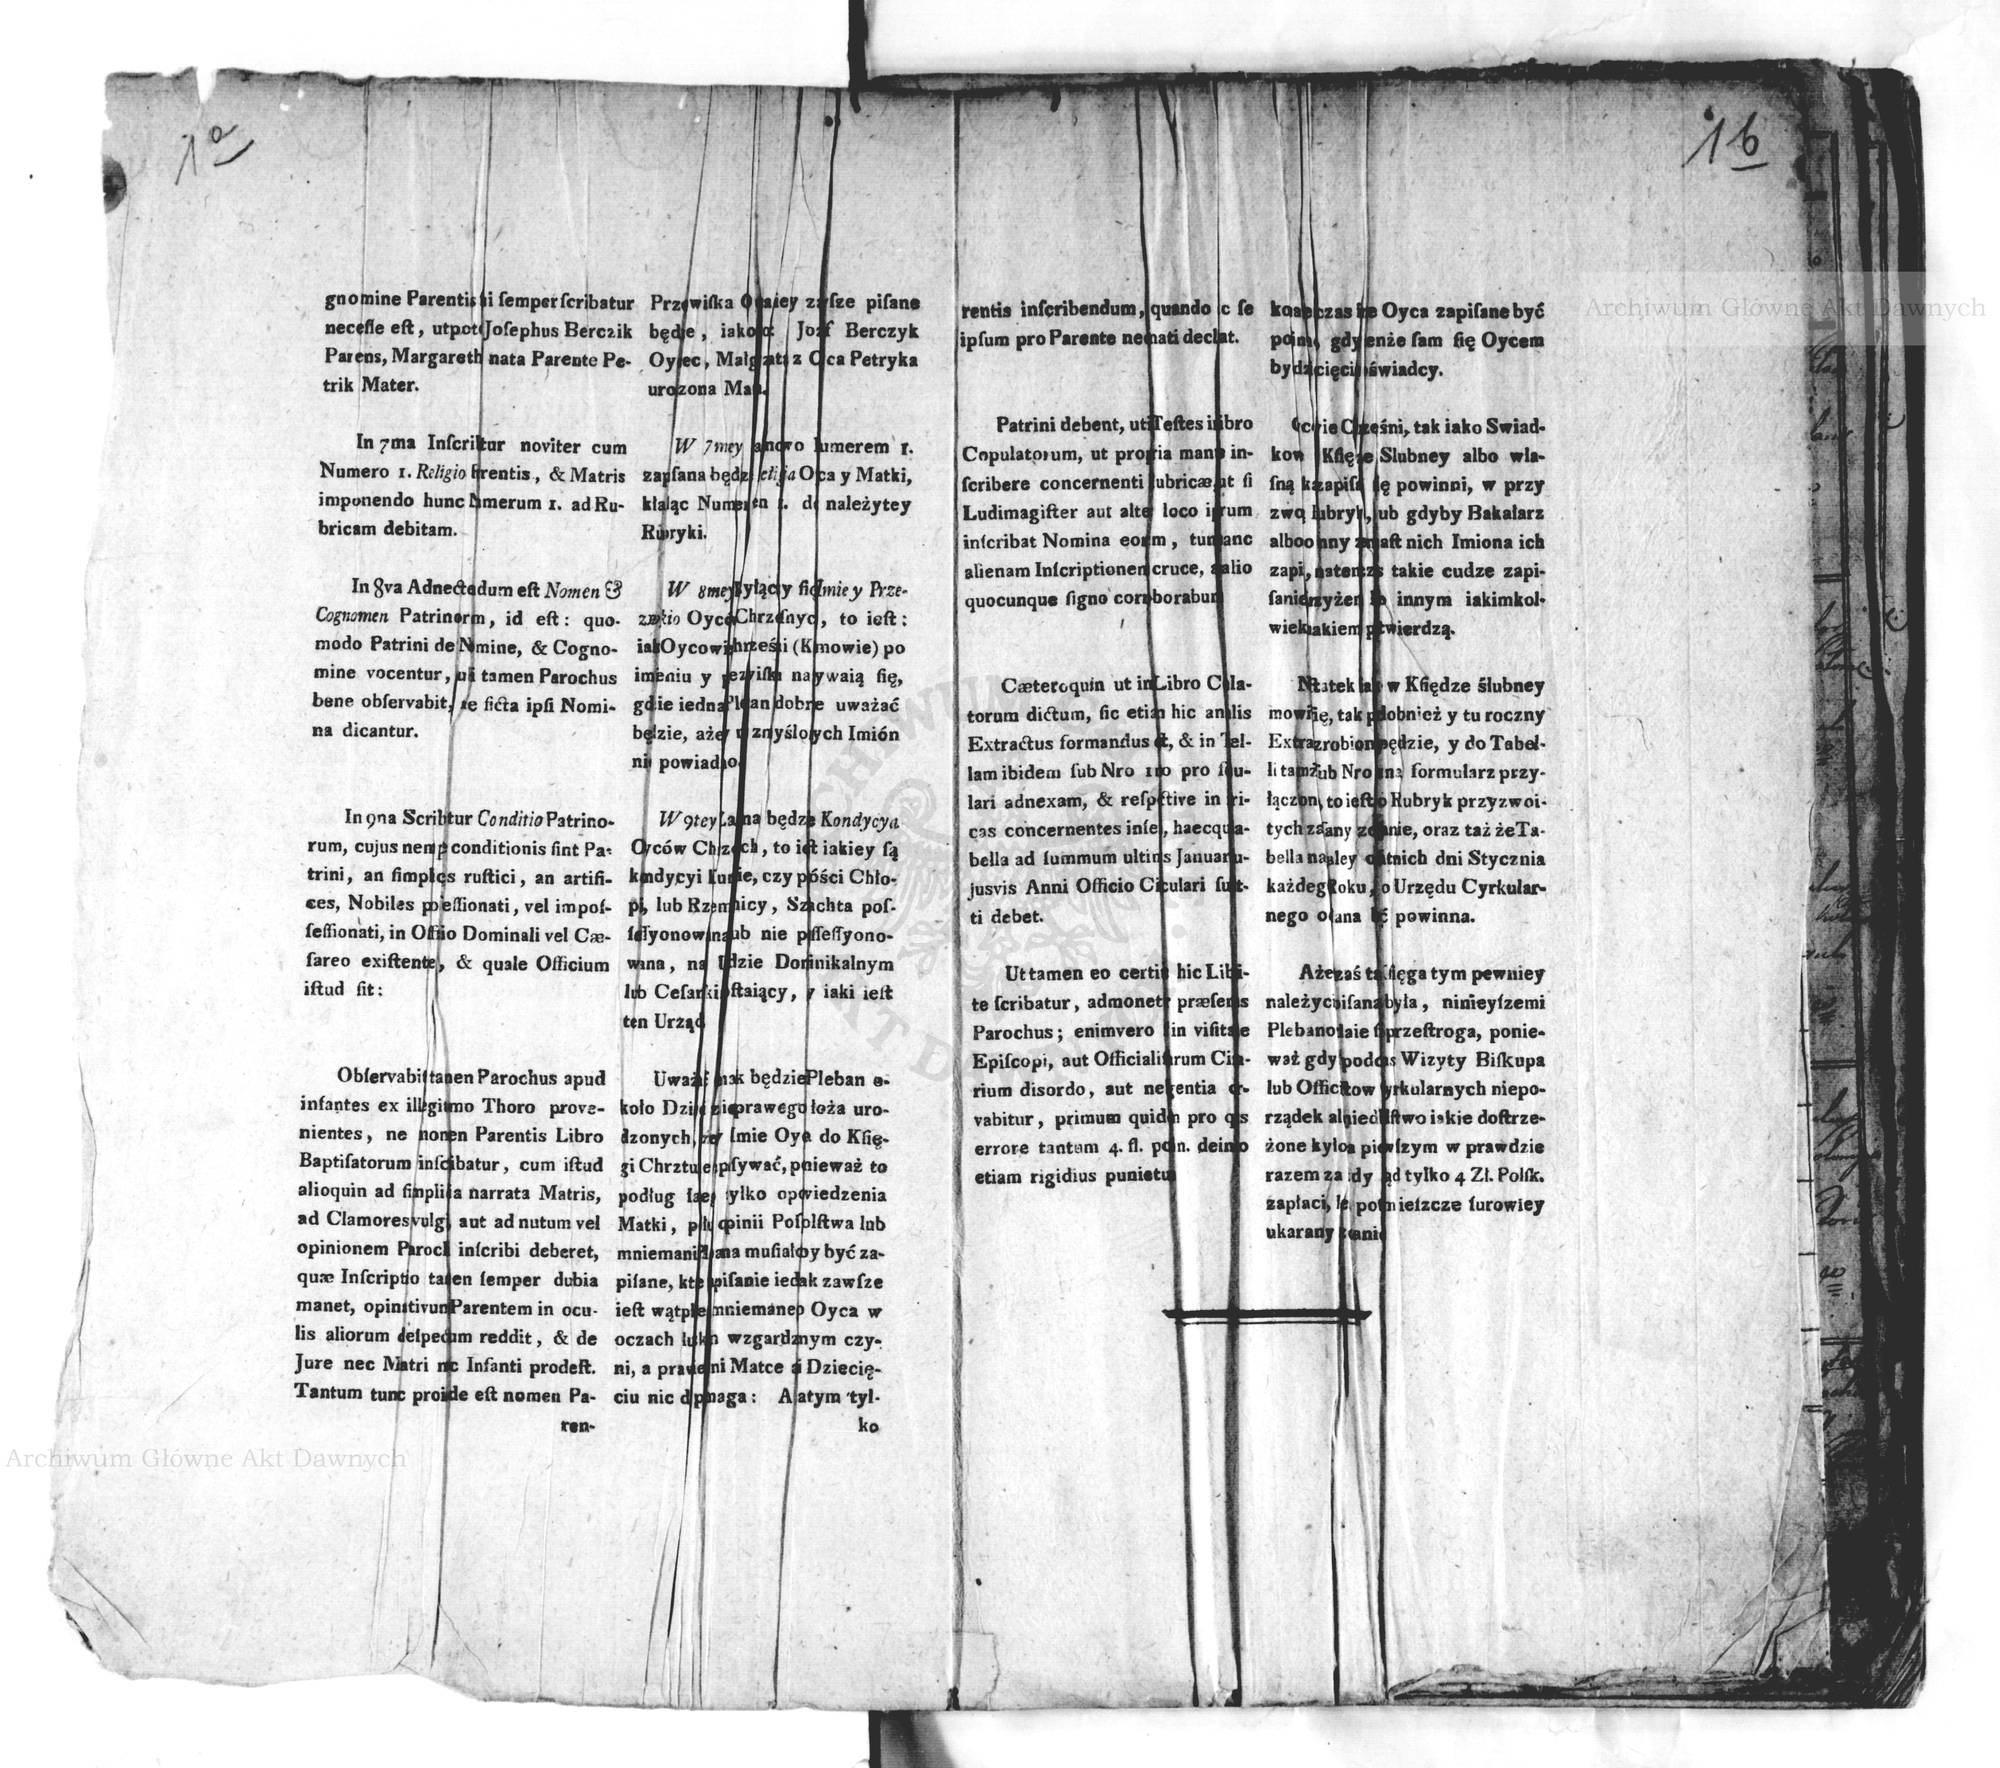 1a
gnomine Parentis ſemper ſcribatur
neceſſe eſt, utpote Joſephus Berczik
Parens, Margareth nata Parente Pe-
trik Mater.
In 7ma Inſcribitur noviter cum
Numero 1. Religio Parentis, & Matris
imponendo hunc Numerum 1. ad Ru-
bricam debitam.
In 8va Adnectedum eſt Nomen &
Cognomen Patrinorm, id eſt: quo-
modo Patrini de Nomine, & Cogno-
mine vocentur, tamen Parochus
bene obſervabit, ne ficta ipſi Nomi-
na dicantur.
In 9na Scribtur Conditio Patrino-
rum, cujus nempe conditionis ſint Pa-
trini, an ſimplices ruſtici, an artifi-
ces, Nobiles poſſeſſionati, vel impoſ-
ſeſſionati, in Officio Dominali vel Cæ-
ſareo exiſtente, & quale Officium
iſtud ſit:
Obſervabit tamen Parochus apud
infantes ex illegitimo Thoro prove-
nientes, ne nomen Parentis Libro
Baptiſatorum inſcribatur, cum iſtud
alioquin ad ſimplicia narrata Matris,
ad Clamores vulgi, aut ad nutum vel
opinionem Parochi inſcribi deberet,
quæ Inſcriptio tamen ſemper dubia
manet, opinativum Parentem in ocu-
lis aliorum deſpectum reddit, & de
Jure nec Matri nec Infanti prodeſt.
Tantum tunc proinde eſt nomen Pa-
ren-
Przewiſka zawſze piſane
będzie, iako to: Jozef Berczyk
Oyciec, Małgorzata z Oyca Petryka
urodzona Matka.
W 7mey znowo Numerem 1.
zapiſana będzie Religija Oyca y Matki,
kładąc Numeren 1. do należytey
Rubryki.
W 8mey Imie y Prze-
zwiſko Oyców Chrzeſnych, to ieſt:
iak Oycowie Chrzeſni (Kmowie) po
imieniu y przezwiſku nazywaią ſię,
gdzie iednak Pleban dobrze uważać
będzie, ażeby zmyślonych Imión
nie powiadano.
W 9tey będzie Kondycya
Oyców Chrzeſnych, to ieſt iakiey ſą
kondycyi Kumowie, czy proſci Chło-
pi, lub Rzemieſnicy, Szlachta poſ-
ſeſſyonowana lub nie poſſeſſyono-
wana, na Urzędzie Dominikalnym
lub Ceſarſkim zoſtaiący, y iaki ieſt
ten Urząd
Uważać iednak będzie Pleban o-
koło Dzieci z nieprawego łoża uro-
dzonych, Imie Oyca do Kſię-
gi Chrztu nie wpiſywać, ponieważ to
podług ſamego tylko opowiedzenia
Matki, podług opinii Poſpolſtwa lub
mniemania Plebana muſiałoby być za-
piſane, które zapiſanie iednak zawſze
ieſt wątpliwe, mniemanego Oyca w
oczach ludzkich wzgardzonym czy-
ni, a prawem ani Matce ani Dziecię-
ciu nic dopomaga: A zatym tyl-
ko
1b
rentis inſcribendum, quando ic ſe
ipſum pro Parente nemati declarat.
Patrini debent, uti Teſtes in Libro
Copulatorum, ut propria manu in-
ſcribere concernenti Rubricæ, ut ſi
Ludimagiſter aut alter loco ipſorum
inſcribat Nomina eorum, tum hanc
alienam Inſcriptionem cruce, aut alio
quocunque ſigno corroborabunt
Cæteroquin ut in Libro Copula-
torum dictum, ſic etiam hic annalis
Extractus formandus eſt, & in Tabel-
lam ibidem ſub Nro 1mo pro formu-
lari adnexam, & reſpective in Rubri-
cas concernentes inſeri, haecque Ta-
bella ad ſummum ultimis Januarii cu-
jusvis Anni Officio Circulari ſubmit-
ti debet.
Ut tamen eo certius hic Liber ri-
te ſcribatur, admonetur præſentibus
Parochus; enimvero ſi in viſitatione
Epiſcopi, aut Officialium Circula-
rium disordo, aut negligentia obſer-
vabitur, primum quidem pro quovis
errore tantum 4. fl. poln. deinceps
etiam rigidius punietur.
ko na ten czas Imie Oyca zapiſane być
powinno, gdy ienże ſam ſię Oycem
bydź Dziecięcia oświadcy.
Oycowie Chrzeſni, tak iako Swiad-
kowie w Kſiędze Slubney albo wła-
ſną ręką zapiſać ſię powinni, w przy
zwoitą Rubrykę, lub gdyby Bakałarz
albo inny zamiaſt nich Imiona ich
zapiſał, natenczas takie cudze zapi-
ſanie krzyżem lub innym iakimkol-
wiek znakiem potwierdzą.
Na oſtatek iak w Kſiędze ślubney
mowi ſię, tak podobnież y tu roczny
Extrakt zrobiony będzie, y do Tabel-
li tamże ſub Nro 1mo na formularz przy-
łączoney, to ieſt do Rubryk przyzwoi-
tych zapiſany zoſtanie, oraz taż że Ta-
bella naydaley oſtatnich dni Stycznia
każdego Roku, do Urzędu Cyrkular-
nego oddana być powinna.
Ażeby zaś ta Kſięga tym pewniey
należycie piſana była, ninieyſzemi
Plebanowi daie ſię przeſtroga, ponie-
waż gdy podczas Wizyty Biſkupa
lub Officialiſtow Cyrkularnych niepo-
rządek albo niedbalſtwo iakie doſtrze-
żone było, za pierwſzym w prawdzie
razem za każdy błąd tylko 4 Zł. Polſk.
zapłaci, lecz potem ieſzcze ſurowiey
ukarany zoſtanie